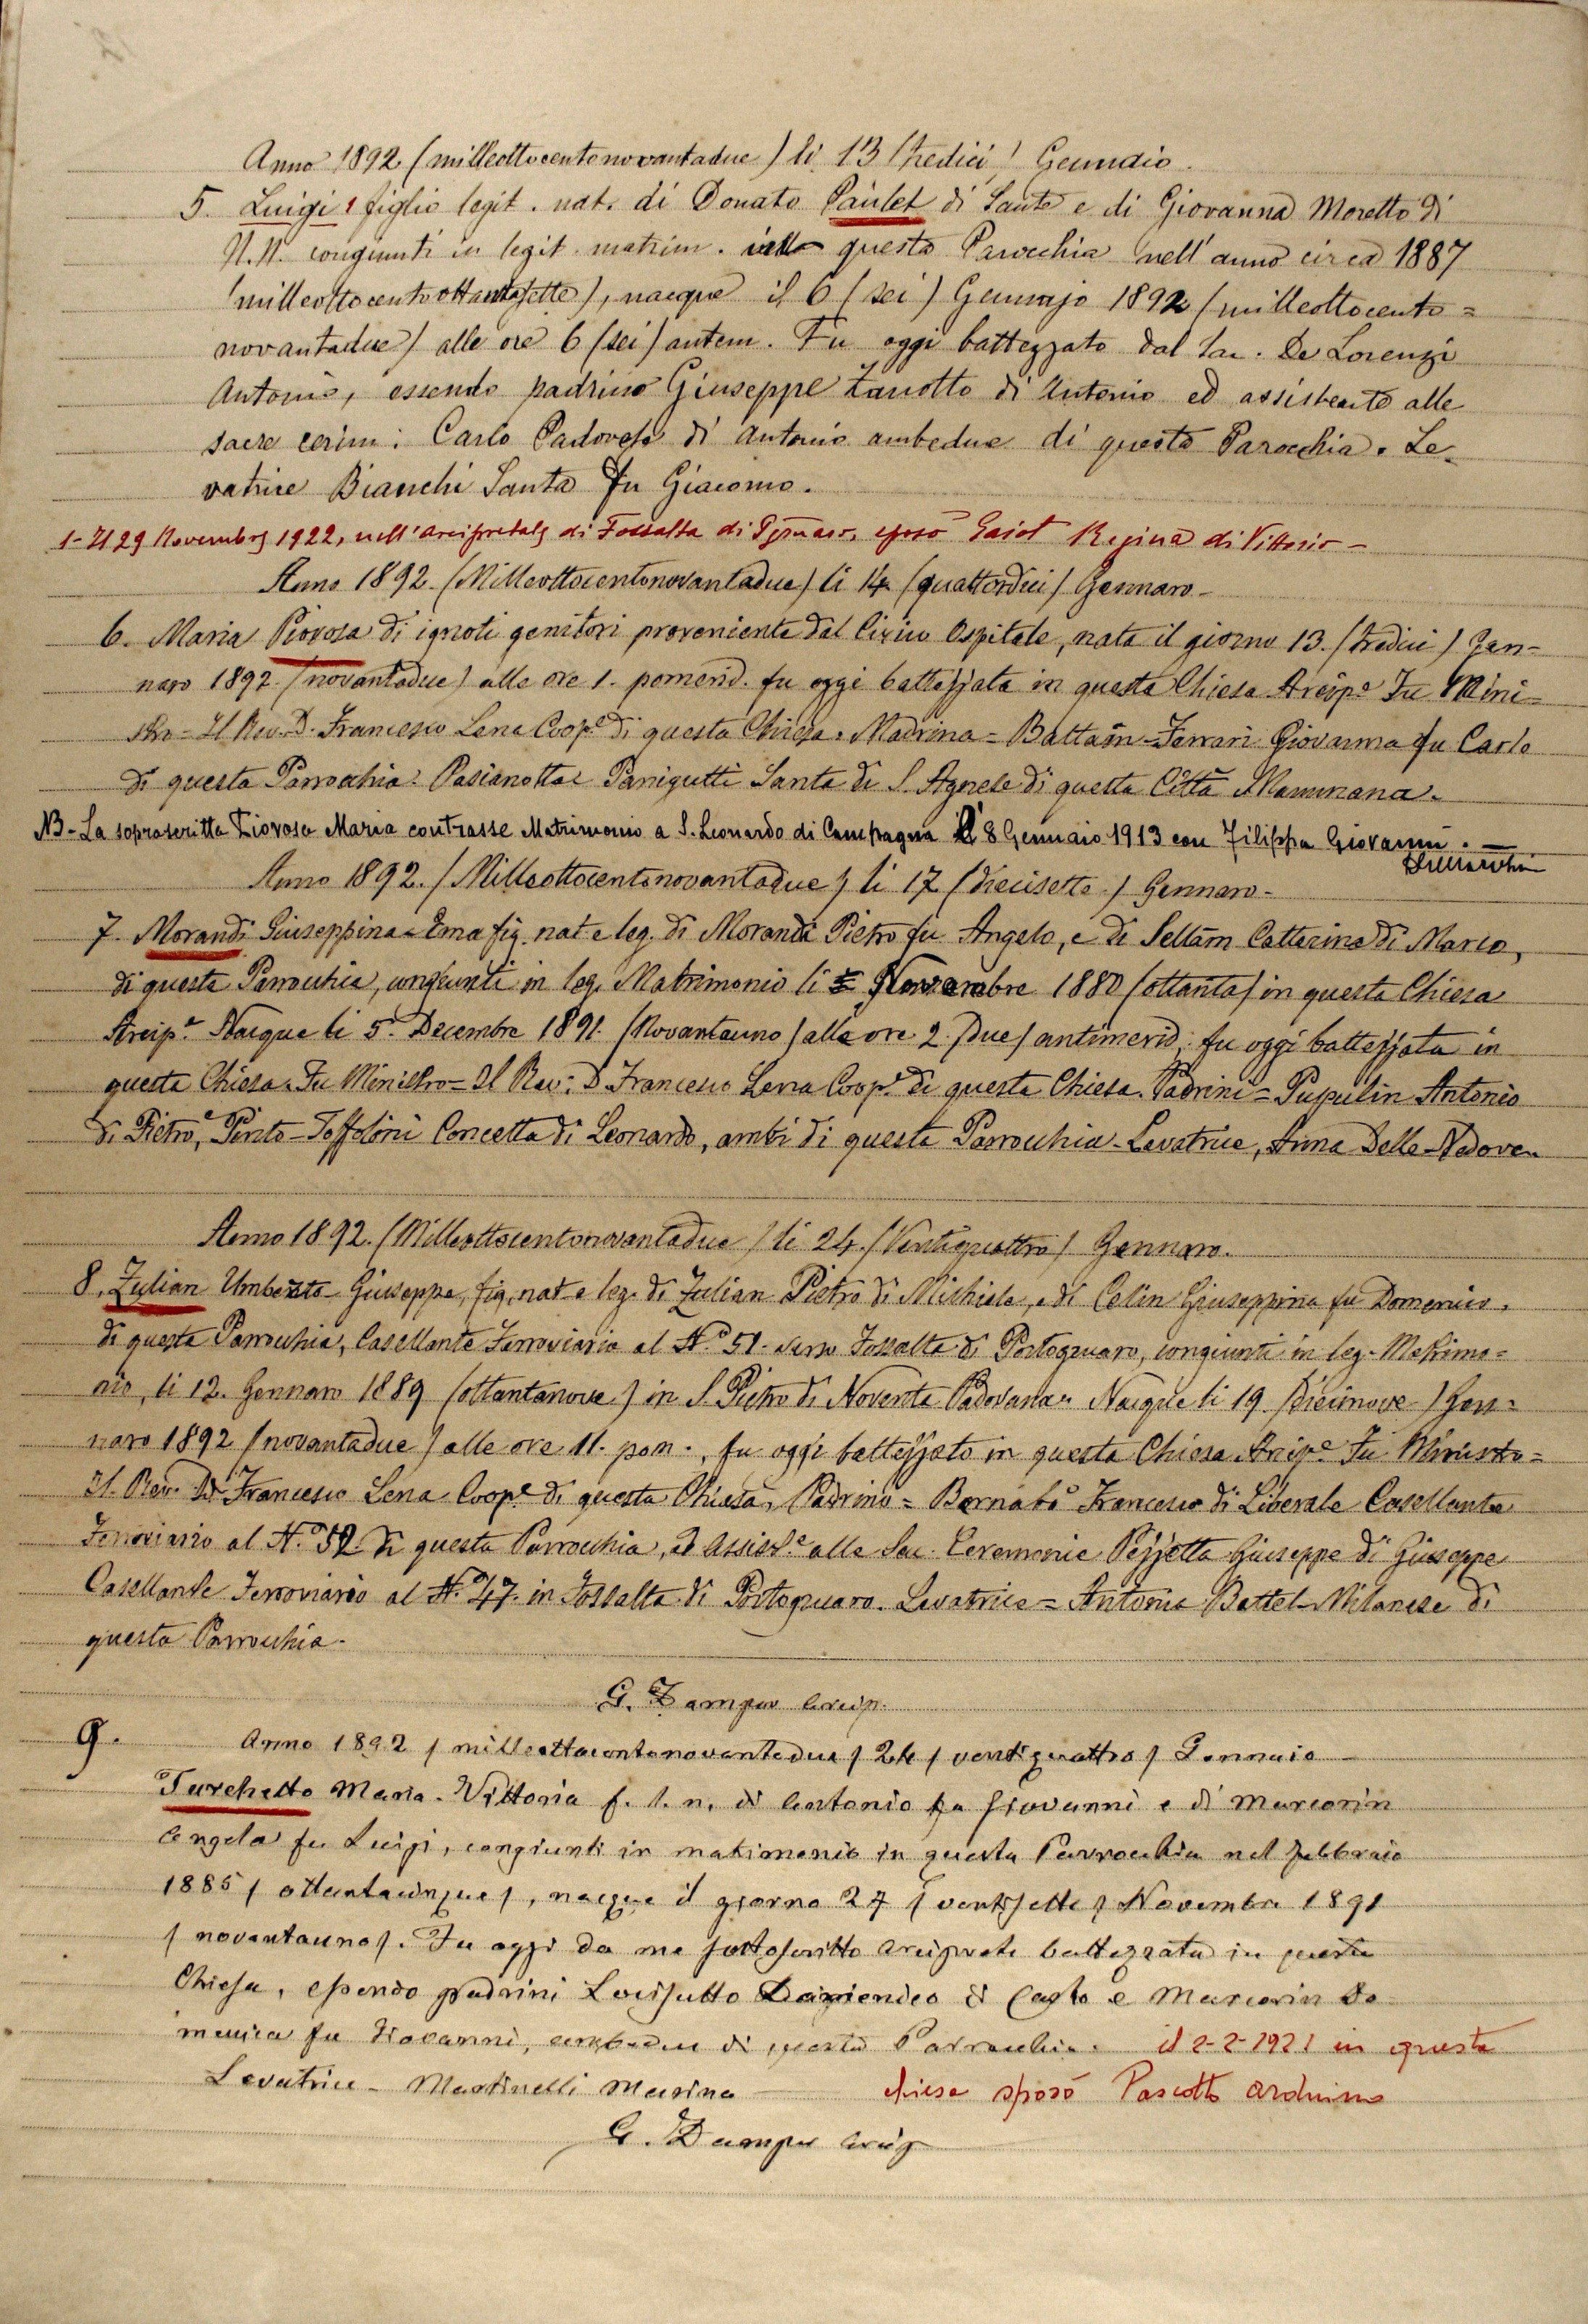 Anno 1892 (milleottocentonovantadue) li 13 (tredici) Gennaio.
5. Luigi 1 figlio legit. nat. di Donato Paulet di Sante e di Giovanna Moretto di
N.N. congiunti in legit. matrim. questa Parocchia nell'anno circa 1887
(milleottocentoottantasette), nacque il 6 (sei) Gennajo 1892 (milleottocento=
novantadue) alle ore 6 (sei) antem. Fu oggi battezzato dal Sac. De Lorenzi
Antonio, essendo padrino Giuseppe Zanotto di Antonio ed assistente alle
sacre cerim: Carlo Padovese di Antonio ambedue di questa Parocchia. Le-
vatrice Bianchi Santa fu Giacomo.
1- Il 29 Novembre 1922, nell'arcipretale di Fossalta di Pgruaro, sposò Gaiot Regina di Vittorio -
Anno 1892. (Milleottocentonovantadue) li 14 (quattordici) Gennaro -
6. Maria Piovosa di ignoti genitori proveniente dal Civico Ospitale, nata il giorno 13. (tredici) Gen-
naro 1892. (novantadue) alle ore 1. pomerid. fu oggi battezzata in questa Chiesa Arcip.e Fu Mini-
stro = Il Rev. D. Francesco Lena Coop.e di questa Chiesa. Madrina = Battain-Ferrari Giovanna fu Carlo
di questa Parrocchia. Panigutti Santa di S. Agnese di questa Città Mammana.
NB - La soprascritta Piovosa Maria contrasse Matrimonio a S. Leonardo di Campagna il 8 Gennaio 1913 con Filippa Giovanni. -
Anno 1892. (Milleottocentonovantadue) li 17 (diecisette) Gennaro -
7. Morandi Giuseppina-Ema fig. nat. e leg. di Morandi Pietro fu Angelo, e di Catterina di Marco,
di questa Parrocchia, congiunti in leg. Matrimonio li Novembre 1880 (ottanta) in questa Chiesa
Arcip.e Nacque li 5. Decembre 1891. (Novantauno) alle ore 2. (due) antimerid. fu oggi battezzata in
questa Chiesa. Fu Ministro = Il Rev: D. Francesco Lena Coop.e di questa Chiesa. Padrini = Pupulin Antonio
di Pietro, e Pinto-Toffoloni Concetta di Leonardo, ambi di questa Parrocchia - Levatrice, Anna Delle-Vedove.
Anno 1892. (Milleottocentonovantadue) li 24. (Ventiquattro) Gennaro.
8. Zulian Umberto-Giuseppe, fig. nat. e leg. di Zulian Pietro di Michiele, e di Celin Giuseppina fu Domenico,
di questa Parrocchia, Casellante Ferroviario al N.o 51. verso Fossalta di Portogruaro, congiunti in leg. Matrimo=
nio, li 12. Gennaro 1889 (ottantanove) in S. Pietro di Noventa Padovana. Nacque li 19. (diecinove) Gen=
naro 1892 (novantadue) alle ore 11. pom., fu oggi battezzato in questa Chiesa Arcip.e Fu Ministro =
Il Rev. D. Francesco Lena Coop.e di questa Chiesa, Padrino = Bernabò Francesco di Liberale Casellante
Ferroviario al N.o 52 di questa Parrocchia, ed Assist.e alle Sac. Ceremonie Pezzetta Giuseppe di Giuseppe
Casellante Ferroviario al N.o 47. in Fossalta di Portogruaro. Levatrice = Antonia Battel-Milanese di
questa Parrocchia.
G. Zampor Arcip.
9. Anno 1892 (milleottocentonovantadue) 24 (ventiquattro) Gennaio
Turchetto Maria-Vittoria f. l. n. di Antonio fu Giovanni e di Marcorin
Angela fu Luigi, congiunti in matimonio in questa Parrocchia nel febbraio
1885 (ottantacinque), nacque il giorno 27 (ventisette) Novembre 1891
(novantauno). Fu oggi da me sottoscritto arciprete battezzata in questa
Chiesa, essendo padrini Domenico di Carlo e Marcorin Do
menica fu Giovanni, ambedue di questa Parrocchia. il 2-2-1921 in questa
Levatrice - Martinelli Marina chiesa sposò Pascotto Arduino
G. Zampor Arcip